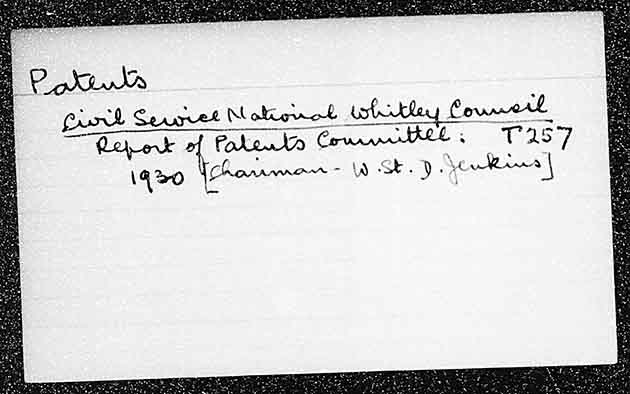 Patents
Civil Service National Whitley Council
Report of Patents Committee: T257
1930 [Chairman - W. St. D. Jenkins]